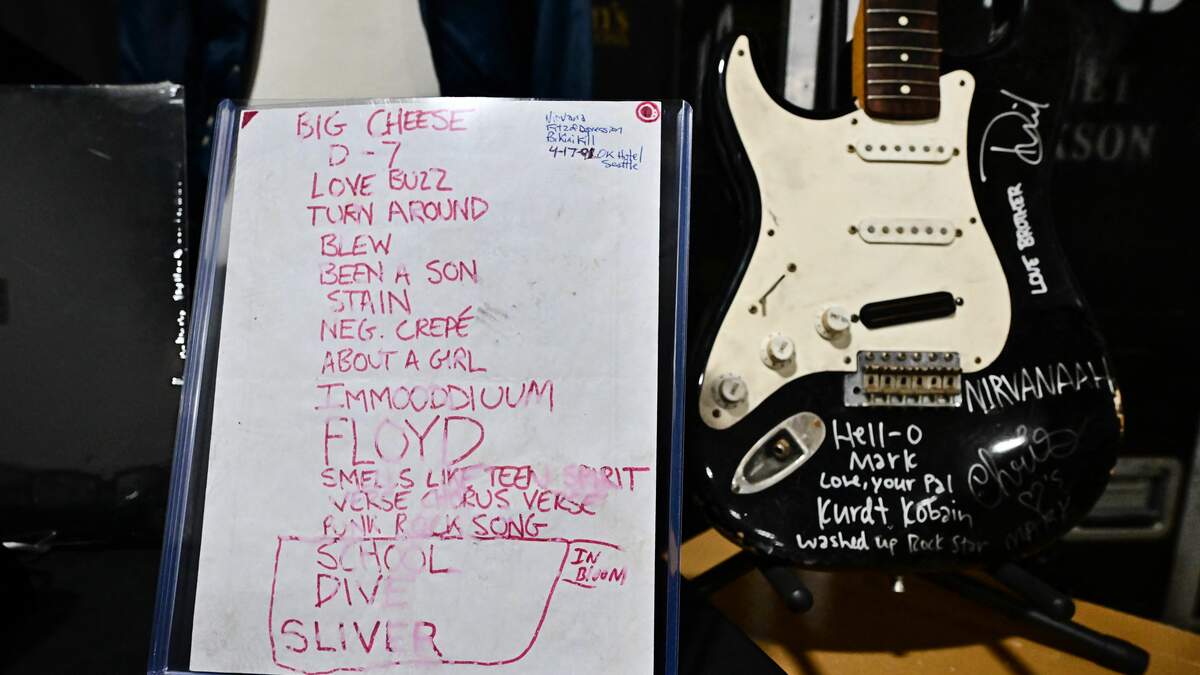 BIG CHEESE
D-7
LOVE BUZZ
TURN AROUND
BLEW
BEEN A SON
STAIN
NEG. CREPÉ
ABOUT A GIRL
IMMOODDIUUM
FLOYD
SMELLS LIKE TEEN SPIRIT
VERSE CHORUS VERSE
PUNK ROCK SONG
SCHOOL
DIVE
SLIVER
IN
BLOOM
Nirvana
Fitz of Depression
Bikini Kill
4-17-91 OK Hotel
Seattle
LOVE BROTHER
NIRVANAAH
Hell-o
Mark
Love, your Pal
Kurdt Kobain
washed up Rock Star
Chris
♡'s
MARK
SON